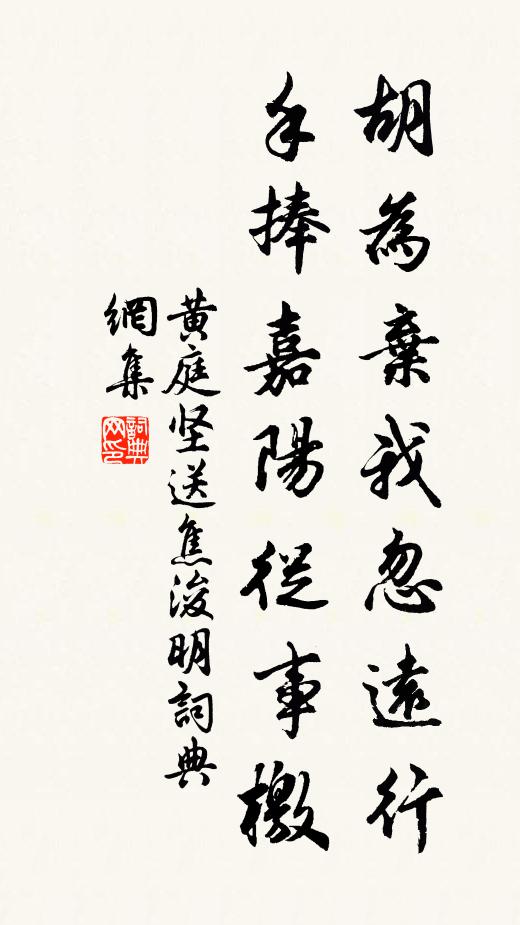 胡為棄我忽遠行
手捧嘉陽從事檄
黄庭坚送焦浚明詞典
網集
詞典
网印